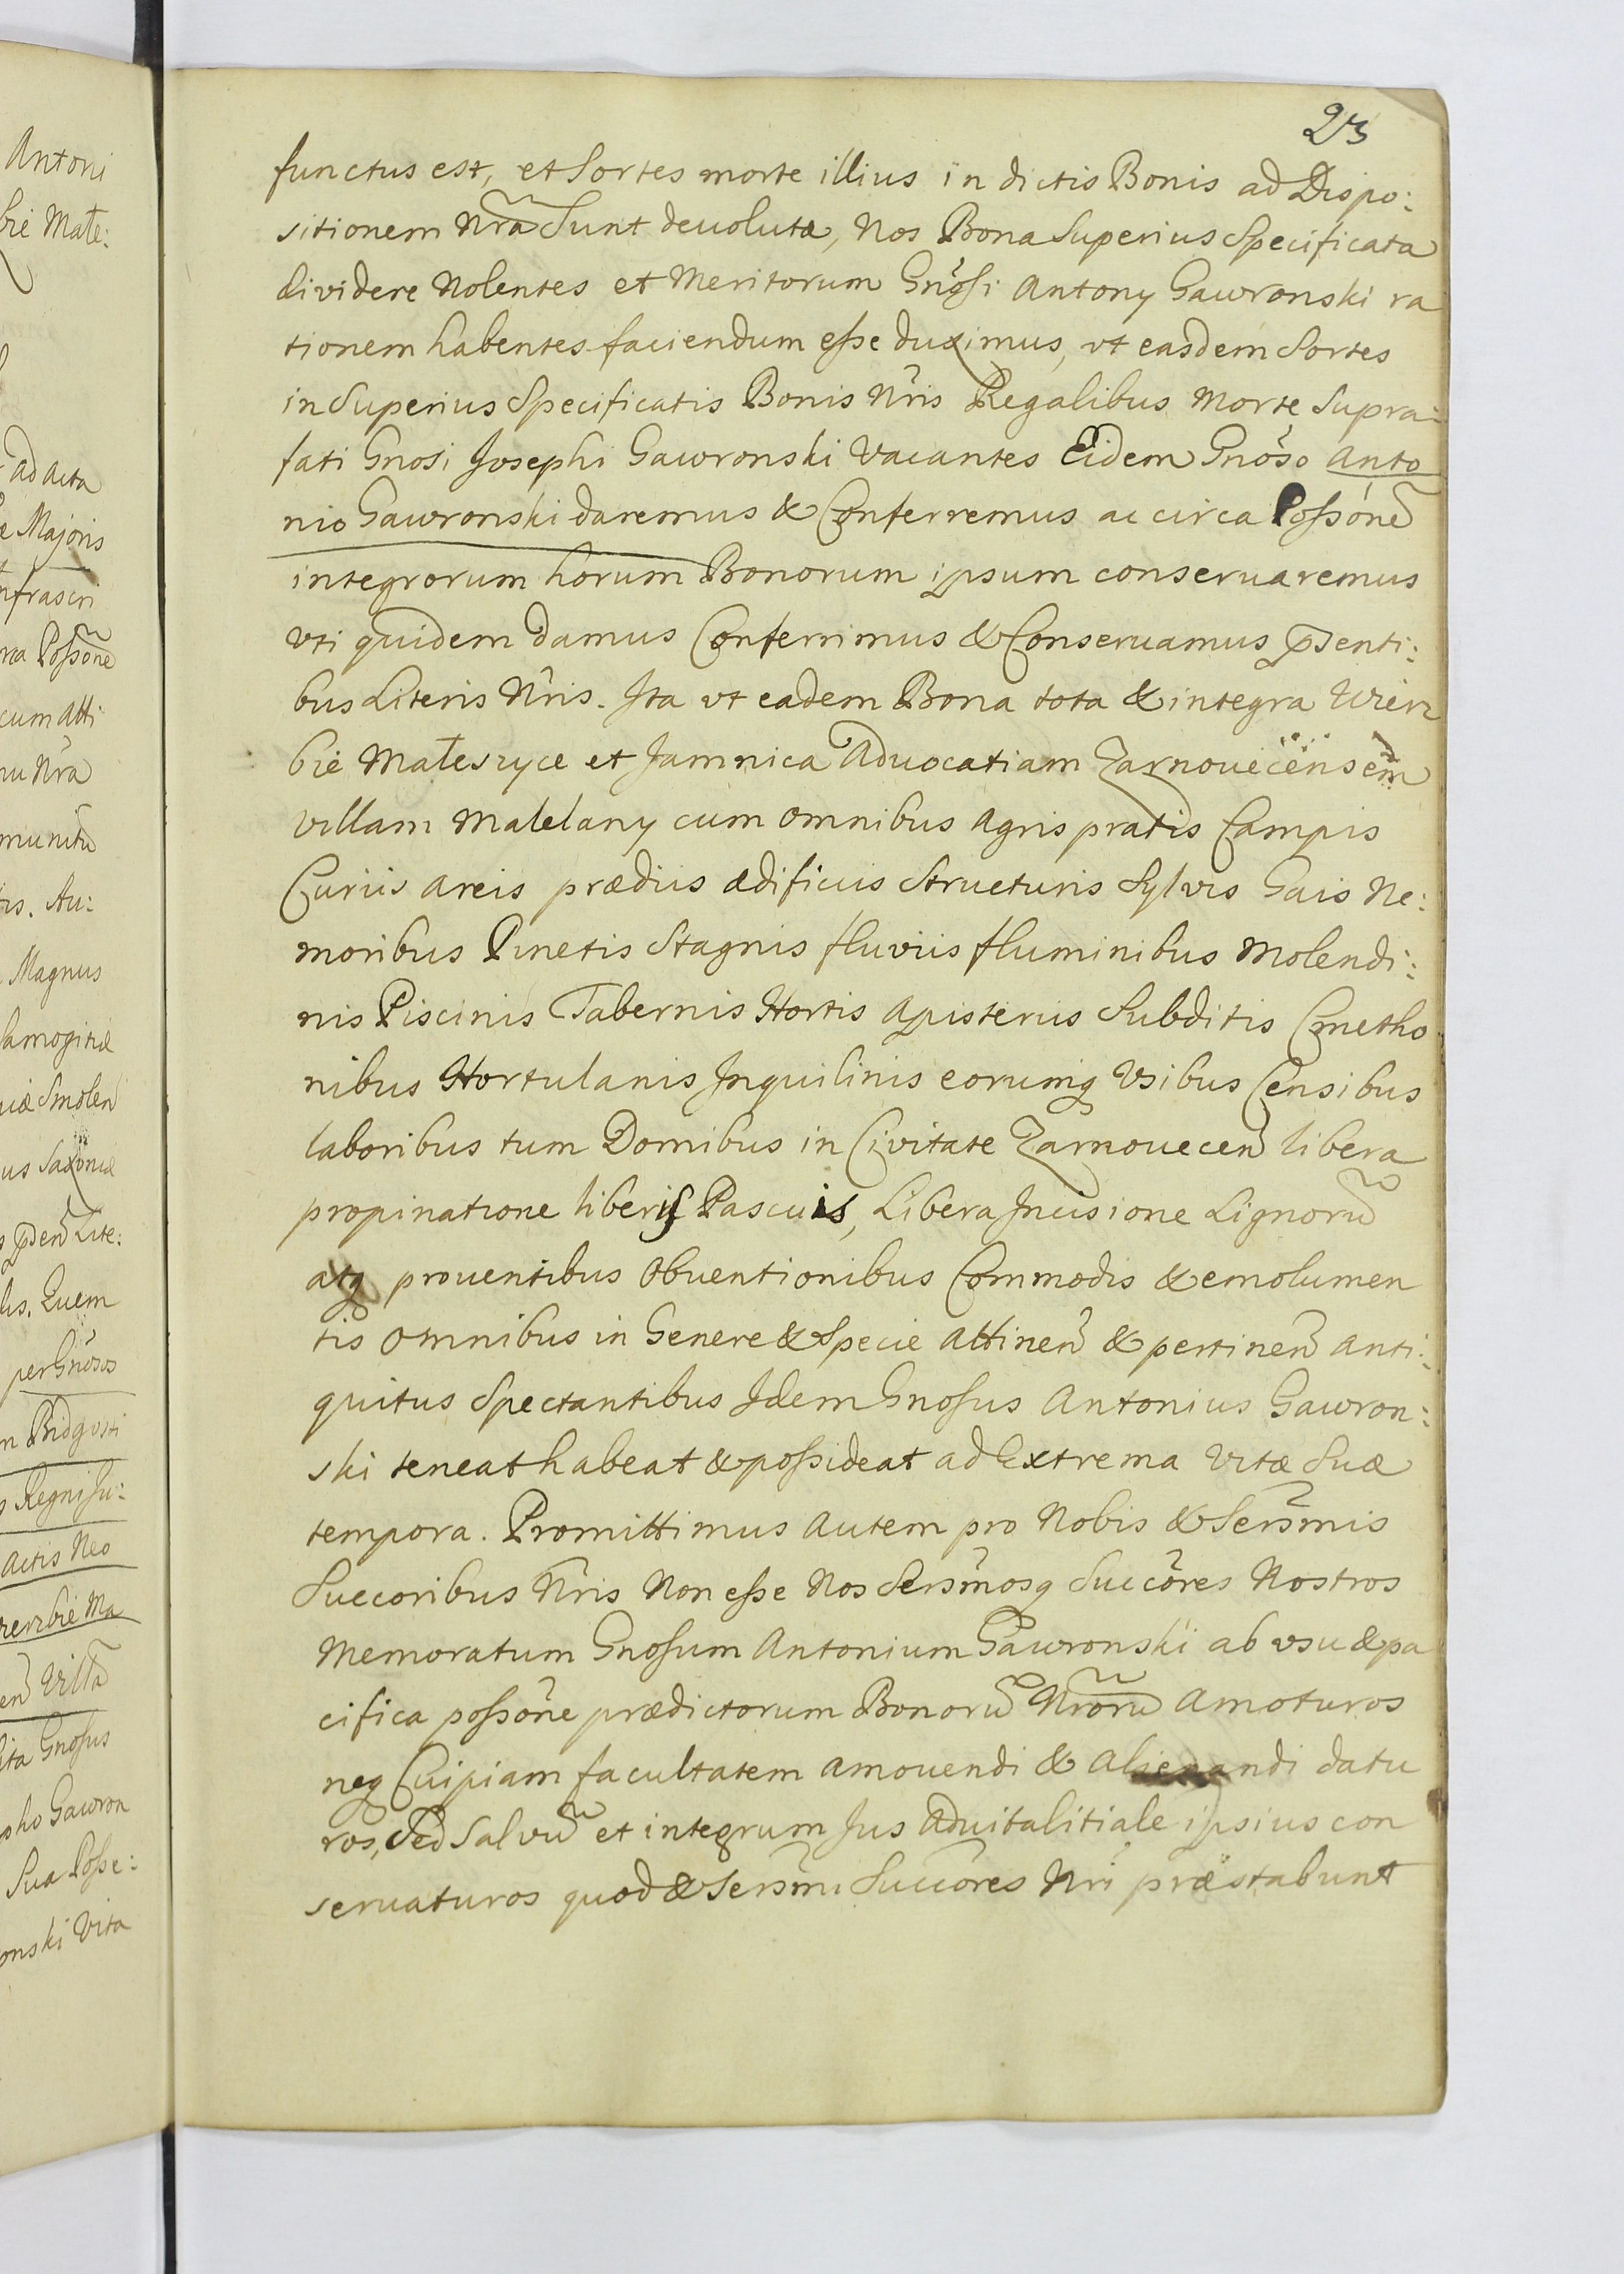 23
functus est, et Sortes morte illius in dictis Bonis ad Dispo:
sitionem Nrã Sunt devolutæ, Nos Bona Superius Specificata
dividere Nolentes et Meritorum Gnosi Antony Gawronski ra
tionem habentes faciendum esse duximus, vt easdem Sortes
in Superius Specificatis Bonis Nris Regalibus Morte Supra:
fati Gnosi Josephi Gawronski Vacantes Eidem Gnoso Anto
nio Gawronski daremus & Conferremus ac circa Possõne
integrorum horum Bonorum ipsum conseruaremus
vti quidem damus Conferimus & Conseruamus pñsenti:
bus Literis Nris. Ita vt eadem Bona tota & integra Wierz
bie Małeszyce et Jamnica Advocatiam Zarnoueciensem
villam Malelany cum omnibus Agris pratis Campis
Curiis Areis prædiis ædificiis Structuris Sylvis Gais Ne:
moribus Pinetis Stagnis fluviis fluminibus Molendi:
nis Piscinis Tabernis Hortis Apisteriis Subditis Cmetho
nibus Hortulanis Inquilinis eorumq Vsibus Censibus
laboribus tum Domibus in Civitate Zarnouecen libera
propinatione liberis Pascuis, Libera Incisione Lignorũ
atq prouentibus Obuentionibus Commodis & emolumen
tis omnibus in Genere & Specie Attinen & pertinen Anti:
quitus Spectantibus Idem Gnosus Antonius Gawron:
ski teneat habeat & possideat ad Extrema Vitæ Suæ
tempora. Promittimus Autem pro Nobis & Sersmis
Succoribus Nris Non esse Nos Sersmosq Succores Nostros
Memoratum Gnosum Antonium Gawronski ab vsu & pa
cifica possõne prædictorum Bonorũ Nrorũ Amoturos
neq Cuipiam facultatem Amouendi & Alienandi datu
ros, Sed Salvũ et integrum Jus Aduitalitiale ipsius con
seruaturos quod & Sersmi Succores Nri præstabunt